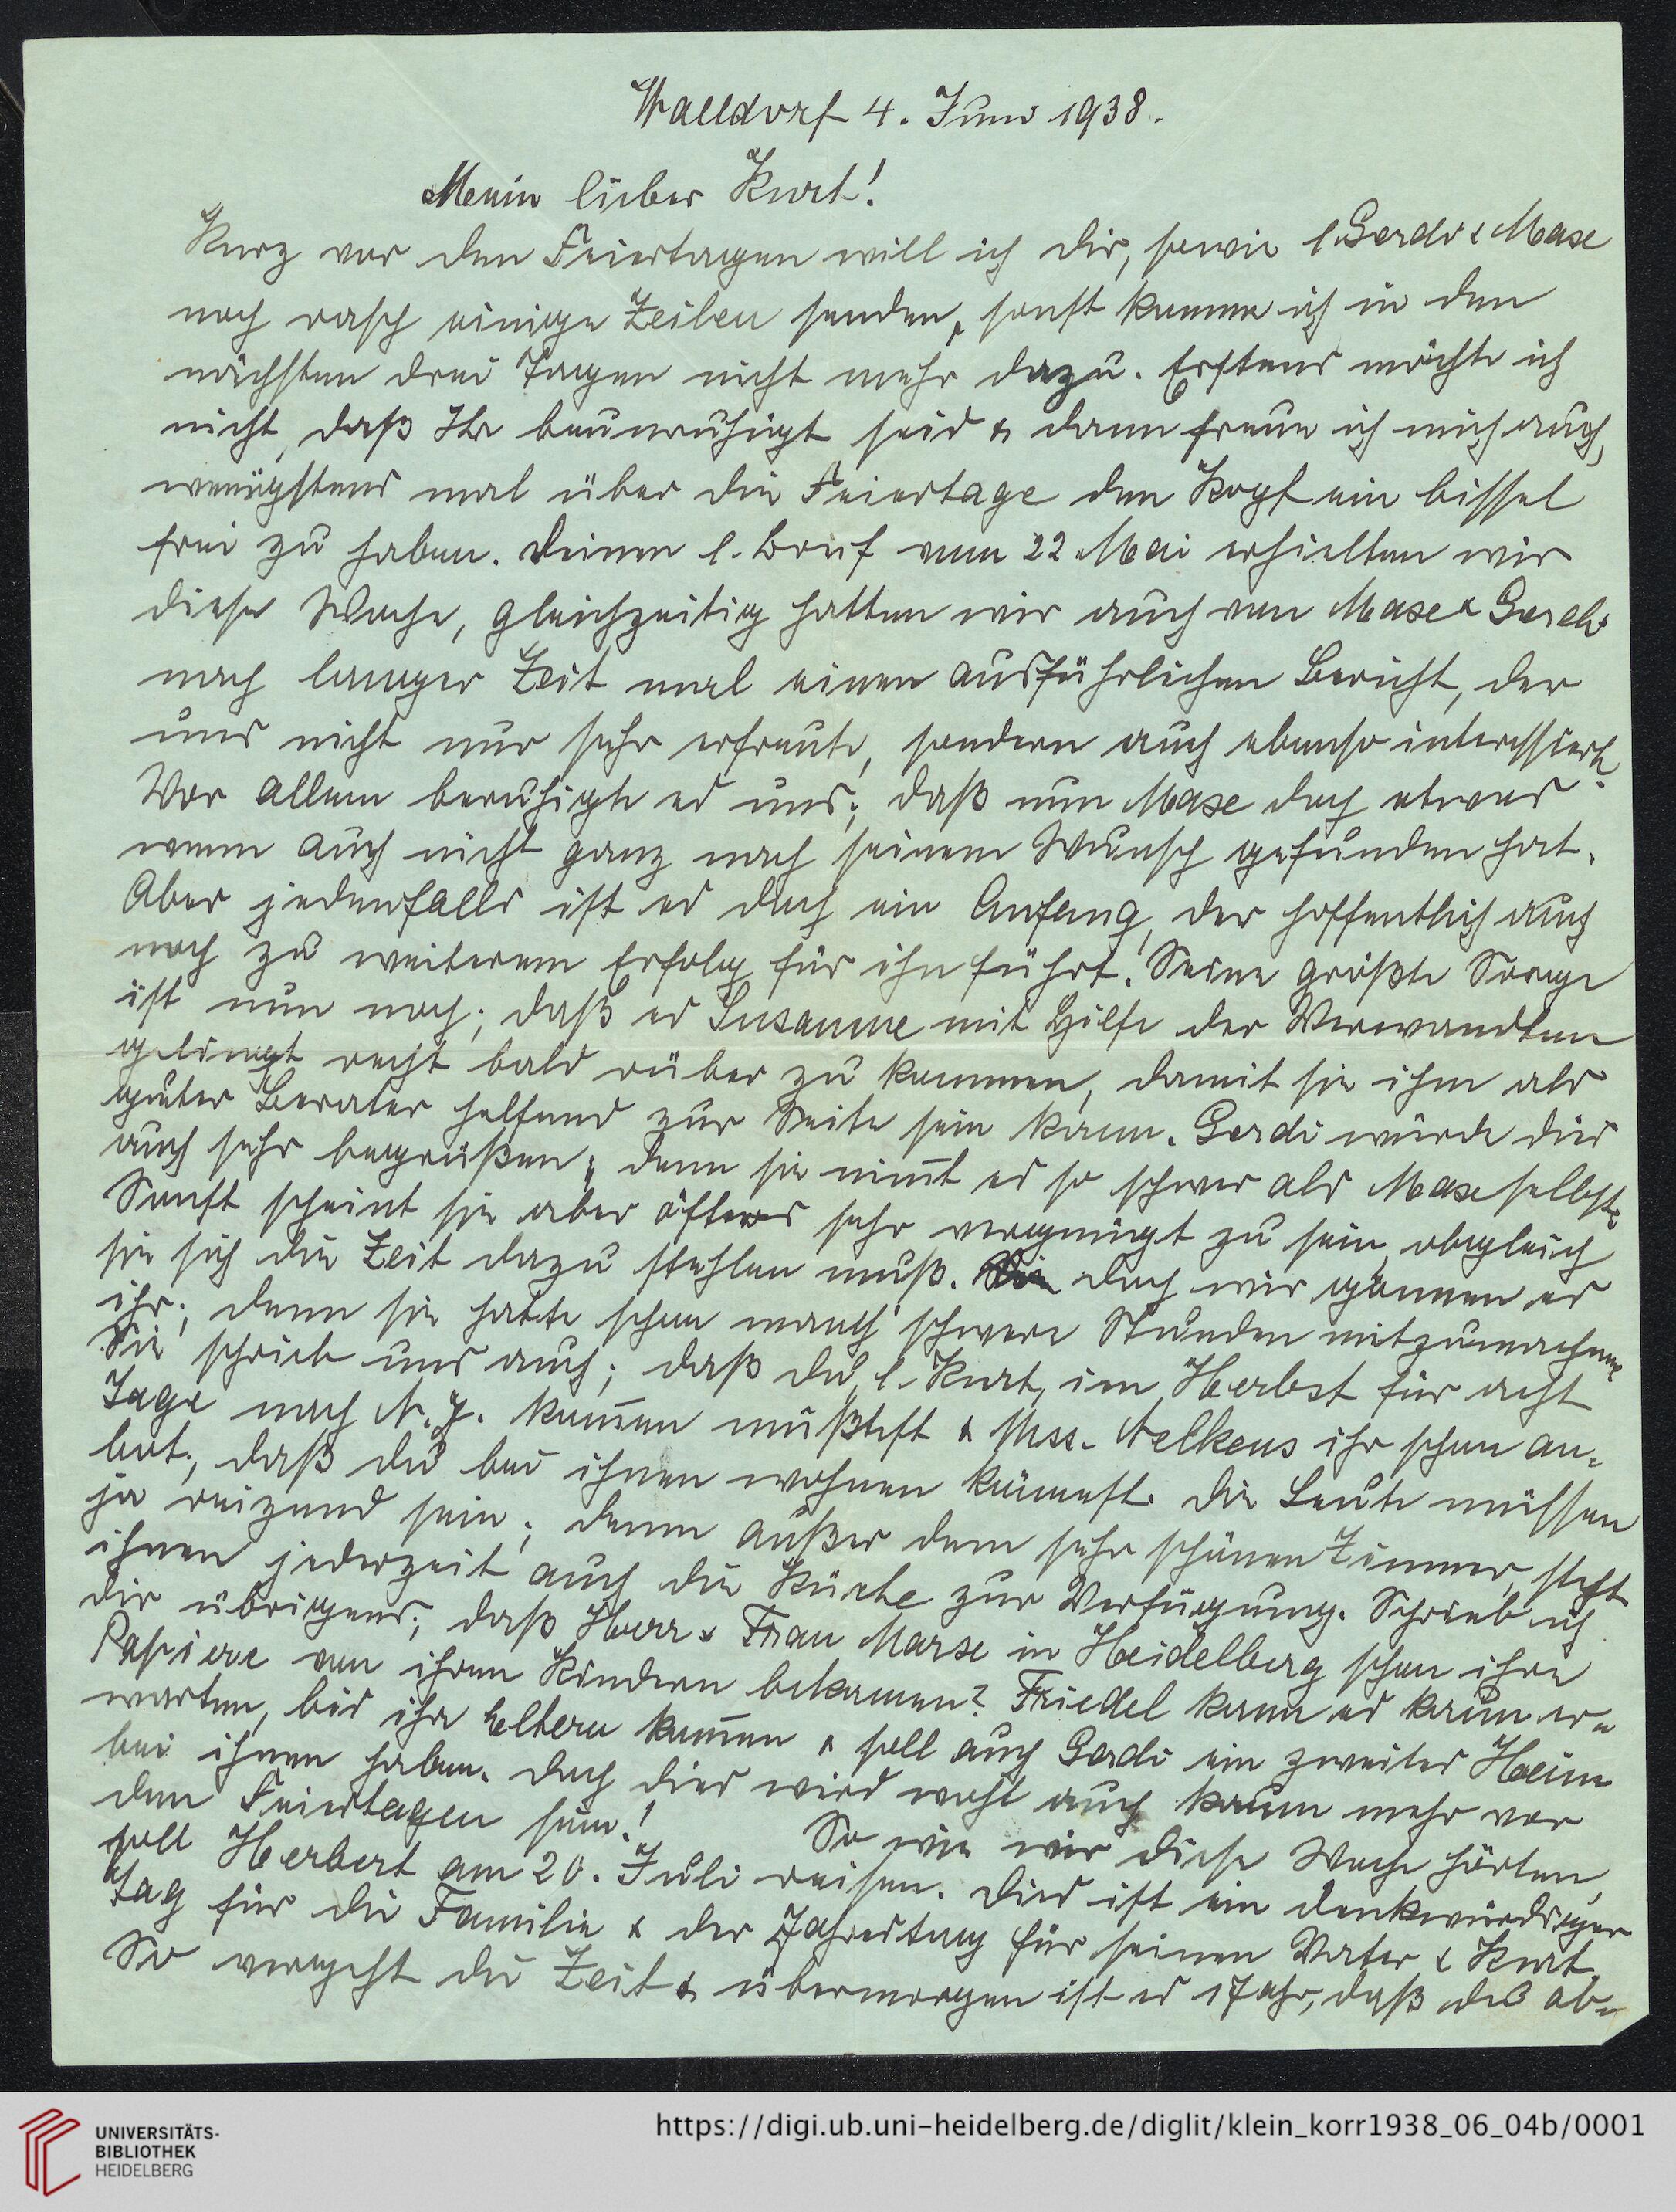 Walldorf 4. Juni 1938.
Mein lieber Kurt!
Kurz vor den Feiertagen will ich dir, sowie l. Gerdi & Maxe
noch rasch einige Zeilen senden, sonst komme ich in den
nächsten drei Tagen nicht mehr dazu. Erstens möchte ich
nicht, daß Ihr beunruhigt seid & dann freue ich mich auch,
wenigstens mal über die Feiertage den Kopf ein bissel
frei zu haben. Deinen l. Brief vom 22 Mai erhielten wir
diese Woche, gleichzeitig hatten wir auch von Maxe & Gerdi
nach langer Zeit mal einen ausführlichen Bericht, der
uns nicht nur sehr erfreute, sondern auch ebenso interessierte.
Vor allem beruhigte es uns; daß nun Maxe doch etwas
wenn auch nicht ganz nach seinem Wunsch gefunden hat.
Aber jedenfalls ist es doch ein Anfang, der hoffentlich auch
noch zu weiterem Erfolg für ihn führt. Seine größte Sorge
ist nun noch; daß es Susanne mit Hilfe der Verwandten
gelingt recht bald rüber zu kommen, damit sie ihm als
guter Berater helfend zur Seite sein kann. Gerdi würde dies
auch sehr begrüßen; denn sie nim̅t es so schwer als Maxe selbst.
Sonst scheint sie aber öfters sehr vergnügt zu sein, obgleich
sie sich die Zeit dazu stehlen muß. doch wir gönnen es
ihr; denn sie hatte schon manch' schwere Stunden mitzumachen.
Sie schrieb uns auch; daß du, l. Kurt, im Herbst für acht
Tage nach N. J. kom̅en müßtest & Mss. Nelkens ihr schon an-
bot, daß du bei ihnen wohnen könntest. Die Leute müssen
ja reizend sein; denn außer dem sehr schönen Zimmer, steht
ihnen jederzeit auch die Küche zur Verfügung. Schrieb ich
dir übrigens; daß Herr & Frau Marx in Heidelberg schon ihre
Papiere von ihren Kindern bekamen? Friedel kann es kaum er-
warten, bis ihre Eltern kom̅en & soll auch Gerdi ein zweites Heim
bei ihnen haben. Doch dies wird wohl auch kaum mehr vor
den Feiertagen sein!
So wie wir diese Woche hörten,
soll Herbert am 20. Juli reisen. Dies ist ein denkwürdiger
Tag für die Familie & der Jahrestag für seinen Vater & Kurt.
So vergeht die Zeit & übermorgen ist es 1 Jahr, daß du ab-
UNIVERSITÄTS-
BIBLIOTHEK
HEIDELBERG
https://digi.ub.uni-heidelberg.de/diglit/klein_korr1938_06_04b/0001